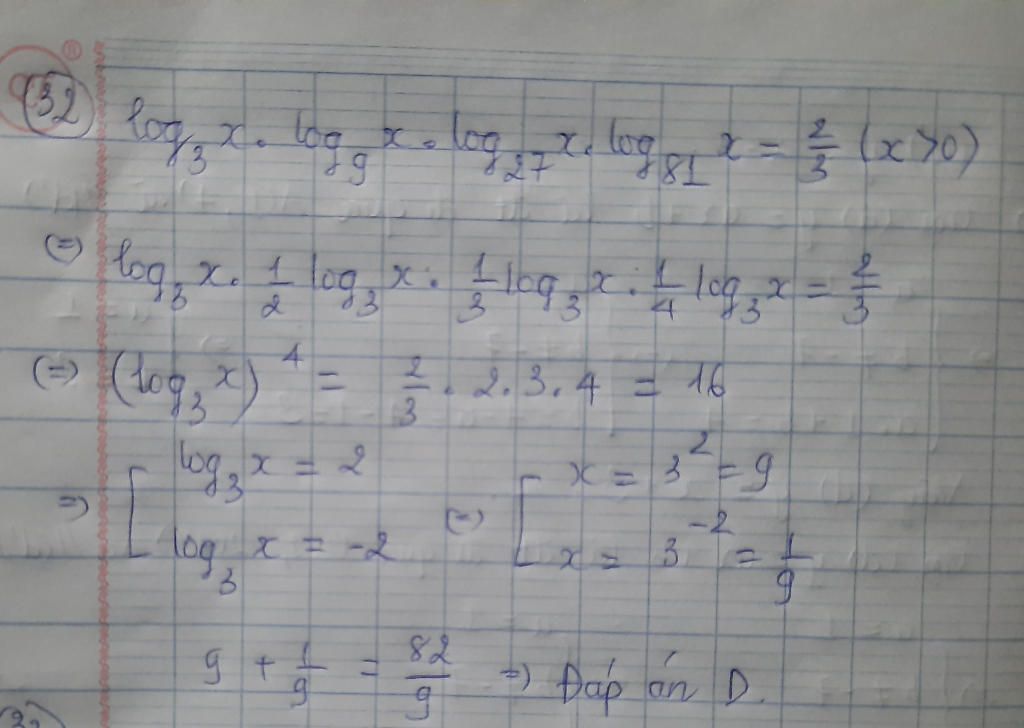 32 log₃x . log₉x . log₂₇x . log₈₁x = 2/3 (x>0)
(=) log₃x . 1/2 log₃x . 1/3 log₃x . 1/4 log₃x = 2/3
(=) (log₃x)⁴ = 2/3 . 2 . 3 . 4 = 16
=) [ log₃x = 2 (=) [ x = 3² = 9
log₃x = -2 x = 3⁻² = 1/9
9 + 1/9 = 82/9 =) Đáp án D.